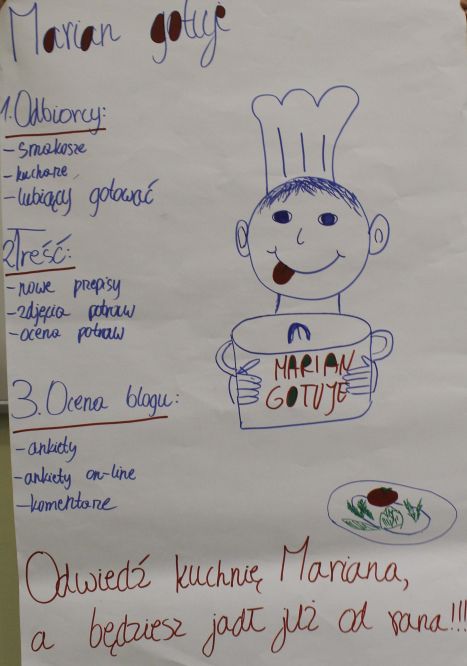 Marian gotuje
1. Odbiorcy:
- smakosze
- kucharze
- lubiący gotować
2. Treść:
- nowe przepisy
- zdjęcia potraw
- ocena potraw
MARIAN
GOTUJE
3. Ocena blogu:
- ankiety
- ankiety on-line
- komentarze
Odwiedź kuchnię Mariana,
a będziesz jadł już od rana!!!